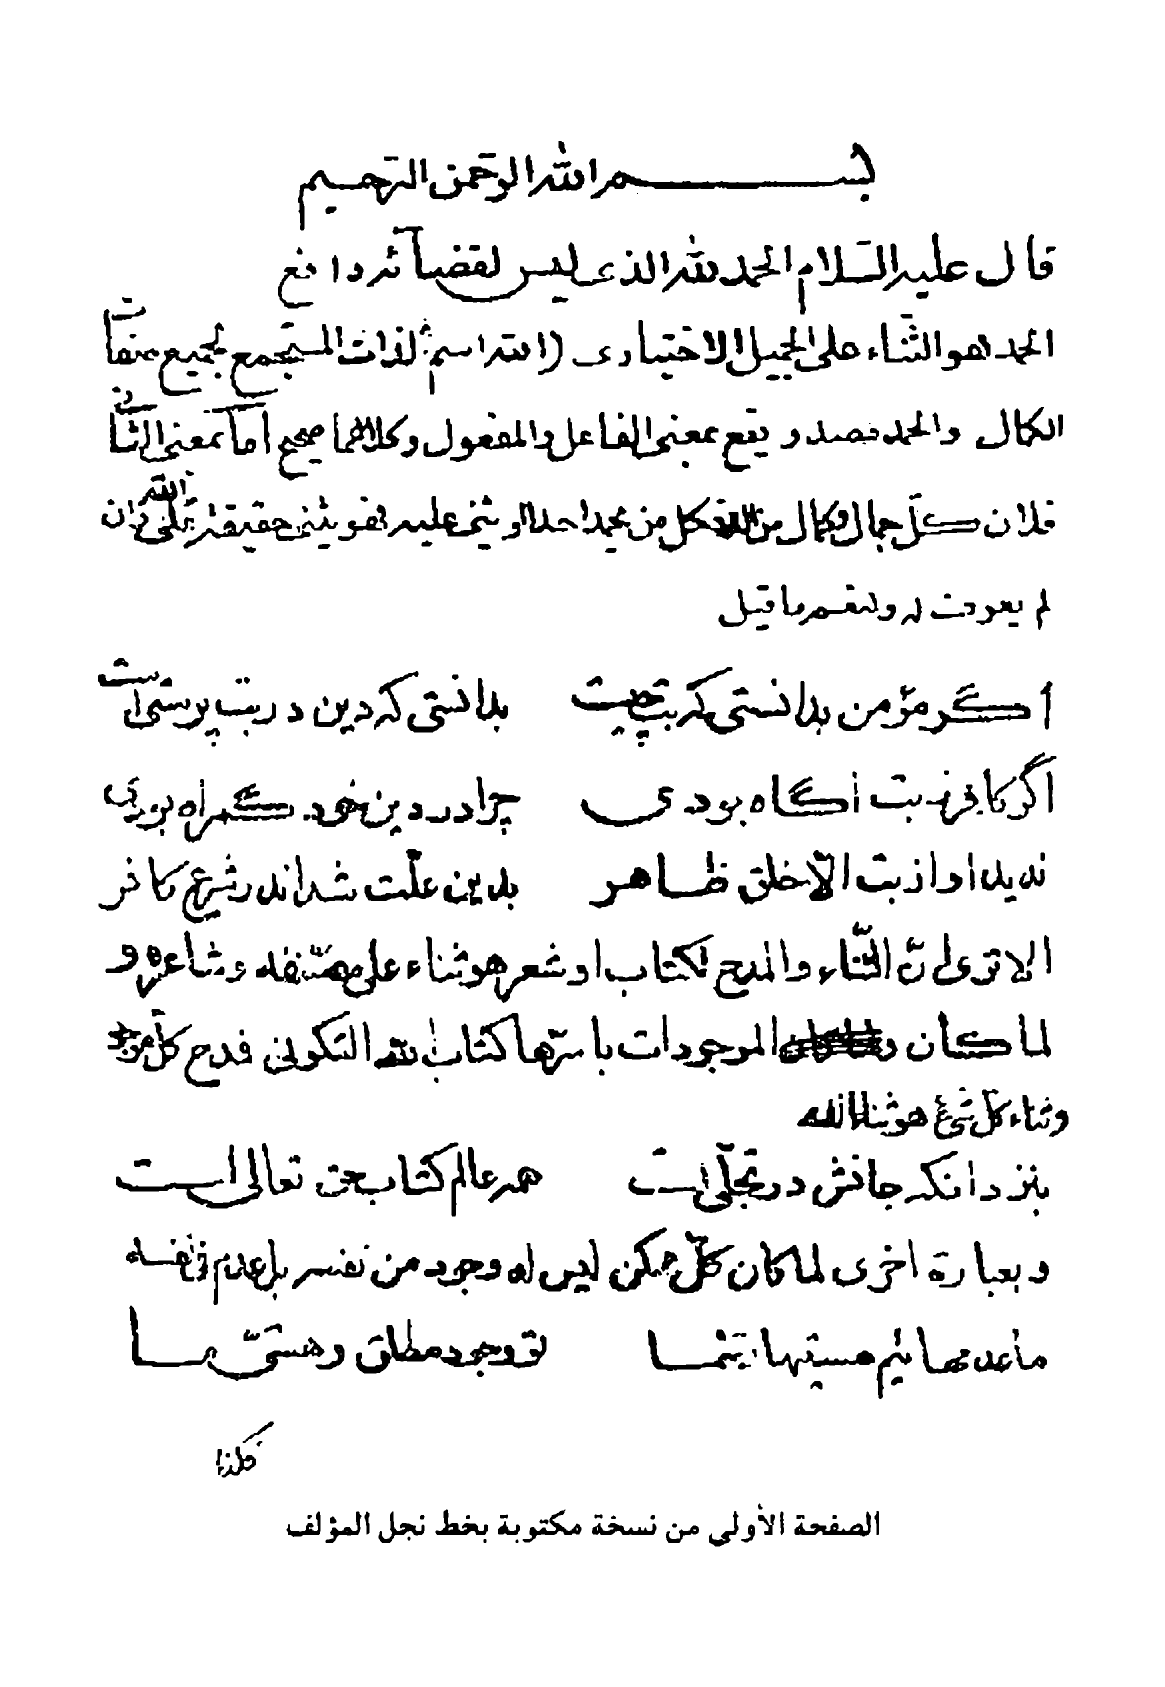 بسم الله الرحمن الرحيم
قال عليه السلام الحمد لله الذى ليس لقضآئه دافع
الحمد هو الثناء على الجميل الاختيارى (الله اسم لذات المستجمع لجميع صفات
الكمال والحمد مصدر و يقع بمعنى الفاعل والمفعول وكلاهما صحيح أما بمعنى الثانى
فلان كلّ جمال وكمال من الله فكل من يحمد احدا او يثنى عليه فهو يثنى حقيقة على الله وان
لم يعرفه ولنعم ما قيل
أگر مؤمن بدانستى كه بت چيست بدانستى كه دين در بت پرستى است
اگر كافر ز بت آگاه بودى چرا در دين خود گمراه بودى
نديد او از بت الّا خلق ظاهر بدين علّت شد اندر شرع كافر
الا ترى انّ الثّناء والمدح لكتاب او شعر هو ثناء على مصنّفه وشاعره و
لما كان الموجودات باسرها كتاب الله التكوينى فمدح كلّ موجود
وثناء كلّ شئ هو ثناء الله
بنزد آنكه جانش در تجلّى است همه عالم كتاب حق تعالى است
و بعبارة اخرى لما كان كلّ ممكن ليس له وجود من نفسه بل عدم فى نفسه
ما عدمهائيم هستيها نما تو وجود مطلق و هستىّ ما
فلذا
الصفحة الأولى من نسخة مكتوبة بخط نجل المؤلف